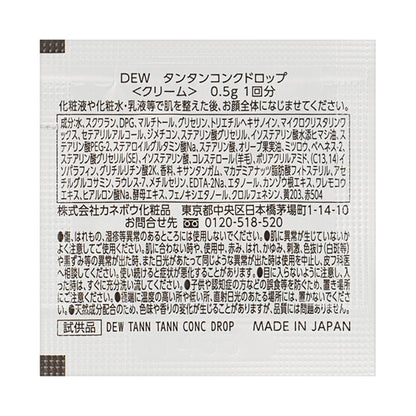 DEW タンタンコンクドロップ
＜クリーム＞ 0.5g 1回分
化粧液や化粧水・乳液等で肌を整えた後、お顔全体になじませてください。
成分:水、スクワラン、DPG、マルチトール、グリセリン、トリエチルヘキサノイン、マイクロクリスタリンワッ
クス、セテアリルアルコール、ジメチコン、ステアリン酸グリセリル、イソステアリン酸水添ヒマシ油、ス
テアリン酸PEG-2、ステアロイルグルタミン酸Na、ステアリン酸、オリーブ果実油、ミツロウ、ベヘネス-2、
ステアリン酸グリセリル(SE)、イソステアリン酸、コレステロール(羊毛)、ポリアクリルアミド、(C13,14)イ
ソパラフィン、グリチルレチン酸2K、香料、キサンタンガム、マカデミアナッツ脂肪酸フィトステリル、アセ
チルグルコサミン、ラウレス-7、メチルセリン、EDTA-2Na、エタノール、カンゾウ根エキス、ワレモコウ
エキス、ヒアルロン酸Na、酵母エキス、フェノキシエタノール、クロルフェネシン、黄203、赤504
株式会社カネボウ化粧品 東京都中央区日本橋茅場町1-14-10
お問合せ先 0120-518-520
●傷、はれもの、湿疹等異常のあるところには使用しないでください。●肌に異常が生じていないか
よく注意してご使用ください。肌に合わない時や、使用中、赤み、はれ、かゆみ、刺激、色抜け(白斑等)
や黒ずみ等の異常が出た時、また日光があたって同じような異常が出た時は使用を中止し、皮フ科医
へ相談してください。使い続けると症状が悪化することがあります。●目に入らないように注意し、入った
時は、すぐに充分洗い流してください。●子供や認知症の方などの誤食等を防ぐため、置き場所
にご注意ください。●極端に温度の高い所や低い所、直射日光のあたる場所には置かないでくださ
い。●天然成分配合のため、色味や香りの変化が生じることがありますが、品質には問題ありません。
試供品 DEW TANN TANN CONC DROP MADE IN JAPAN